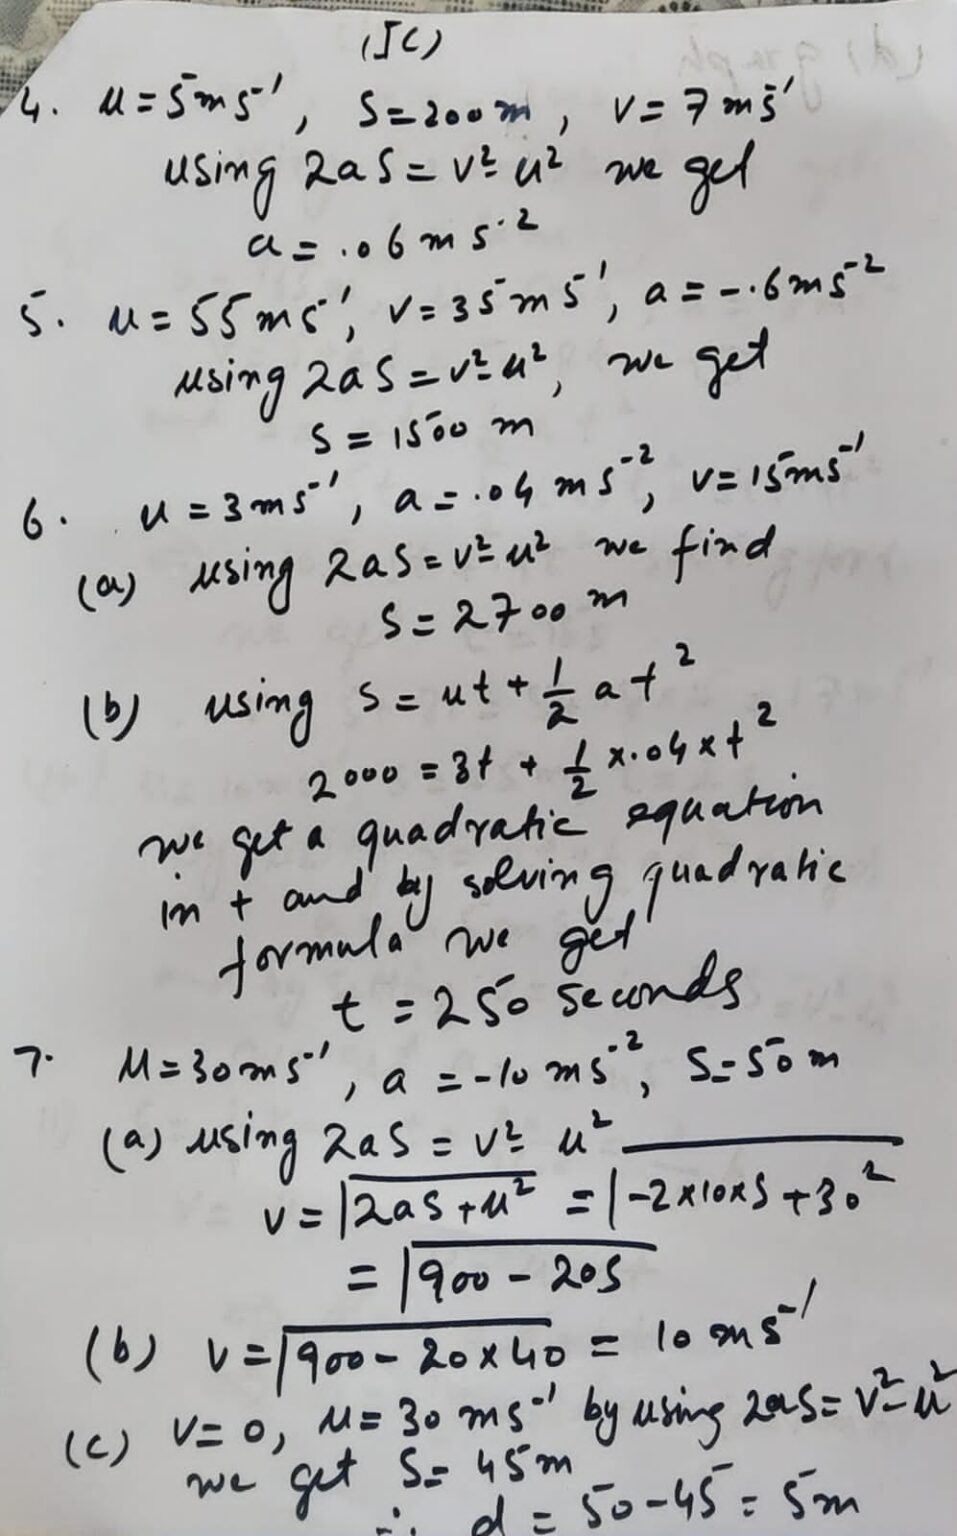 (JC)
4. u = 5ms⁻¹, S = 200m, v = 7ms⁻¹
using 2aS = v² - u² we get
a = .06ms⁻²
5. u = 55ms⁻¹, v = 35ms⁻¹, a = -.6ms⁻²
using 2aS = v² - u², we get
S = 1500 m
6. u = 3ms⁻¹, a = .04 ms⁻², v = 15ms⁻¹
(a) using 2aS = v² - u² we find
S = 2700 m
(b) using S = ut + 1/2 at²
2000 = 3t + 1/2 x .04 x t²
we get a quadratic equation
in t and by solving quadratic
formula we get
t = 250 seconds
7. u = 30ms⁻¹, a = -10 ms⁻², S = 50 m
(a) using 2aS = v² - u²
v = √(2aS + u²) = √(-2x10xS + 30²)
= √(900 - 20S)
(b) v = √(900 - 20x40) = 10 ms⁻¹
(c) v = 0, u = 30 ms⁻¹ by using 2aS = v² - u²
we get S = 45m
∴ d = 50 - 45 = 5m